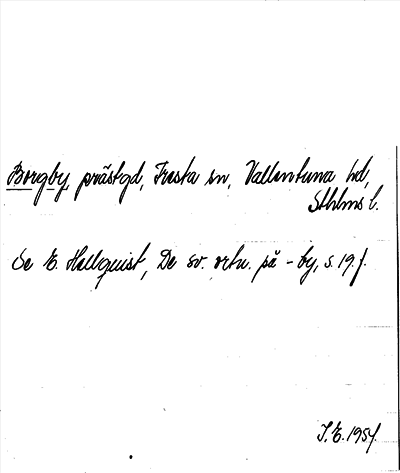 Borgby, prästgd, Fresta sn, Vallentuna hd,
Sthlms l.
Se E. Hellquist, De sv. ortn. på -by, s. 19 f.
I.E. 1954.